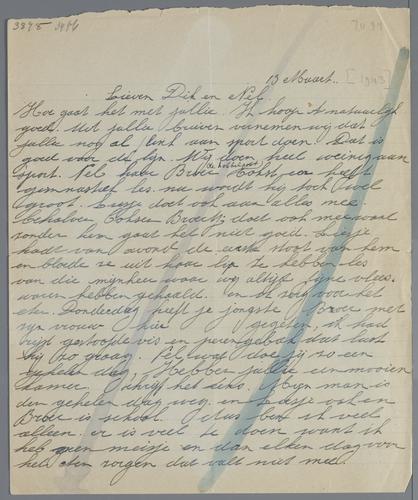 3895
13 Maart. [1943]
Lieven Dik en Nel
Hoe gaat het met jullie. Ik hoop natuurlijk
goed. Uit jullie brieven vernemen wij dat
jullie nog al flink aan sport doen. Dat is
goed voor de lijn. Wij doen heel weinig aan
sport. Nel haar Broer
gymnastiek les. nu wordt hij toch wel
groot. Liesje doet ook aan alles mee
behalve boksen Broertje doet ook mee want
zonder hem gaat het niet goed. Liesje
hadt van avond de eerste stoot van hem
en bloede ze uit haar lip. Ze hebben les
van die mijnheer waar wij altijd fijne vlees.
waren hebben gehaald. en zorg voor het
eten. Donderdag heeft je jongste Broer met
zijn vrouw hier gegeten, ik had
rijst gestoofde vis en perengebak dat lust
hij zo graag. Nel wat doe jij zo een
geheele dag. Hebben jullie een mooien
kamer. Schrijf het eens. Mijn man is
den gehelen dag weg. en Liesje ook en
Broer is school. Dus ben ik veel
alleen. er is veel te doen want ik
heb geen meisje en dan elken dag voor
het eten zorgen dat valt niet mee.